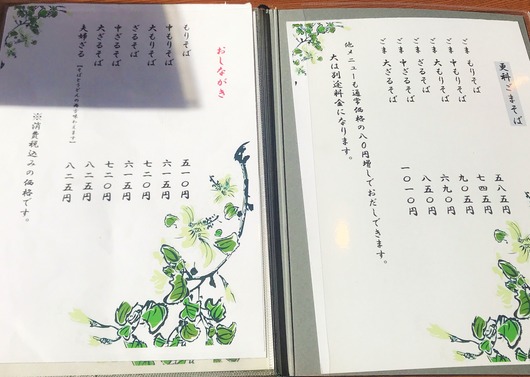 おしながき
もりそば 五一〇円
中もりそば 六一五円
大もりそば 七二〇円
ざるそば 六一五円
中ざるそば 七二〇円
大ざるそば 八二五円
夫婦ざる【そばとうどんの両方が味わえます】 八二五円
※消費税込みの価格です。
更科ごまそば
ごま もりそば 五八五円
ごま 中もりそば 七四五円
ごま 大もりそば 九〇五円
ごま ざるそば 六九〇円
ごま 中ざるそば 八五〇円
ごま 大ざるそば 一〇一〇円
他メニューも通常価格の八〇円増しでおだしできます。
大は別途料金になります。